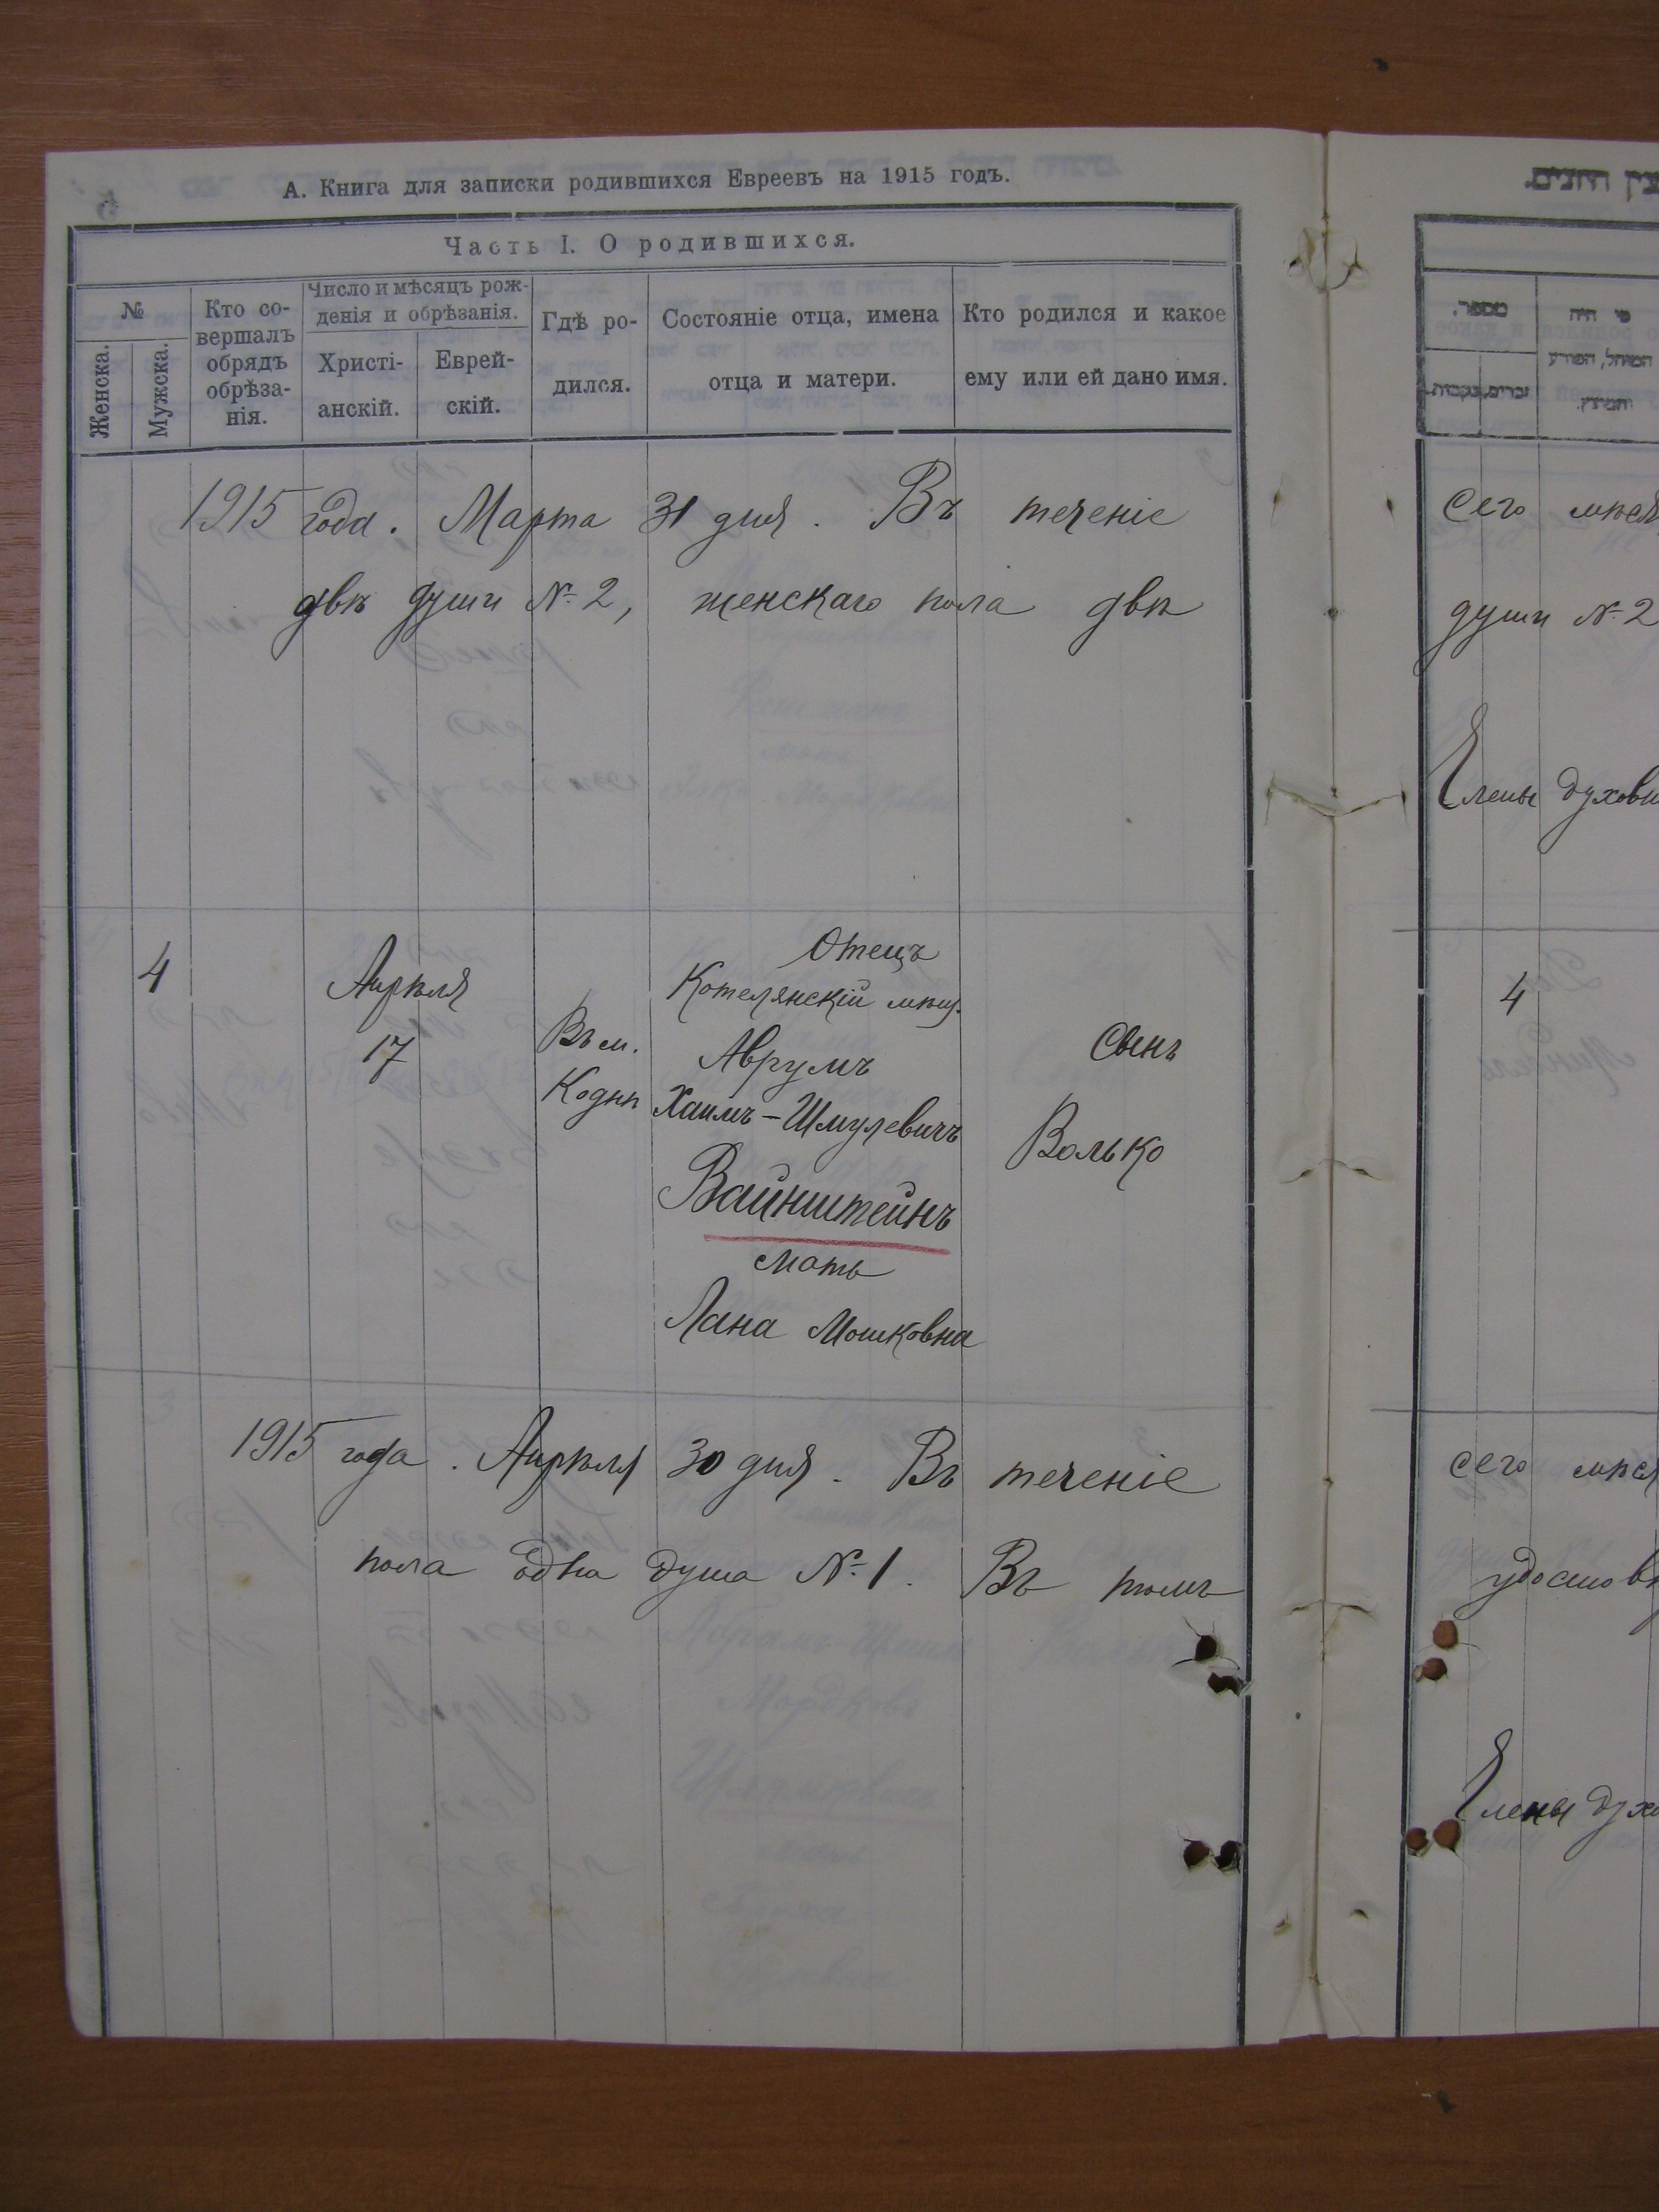 А. Книга для записки родившихся Евреевъ на 1915 годъ.
Часть I. О родившихся.
№
Женска.
Мужска.
Кто со-
вершалъ
обрядъ
обрѣза-
нія.
Число и мѣсяцъ рож-
денія и обрѣзанія.
Христі-
анскій.
Еврей-
скій.
Гдѣ ро-
дился.
Состояніе отца, имена
отца и матери.
Кто родился и какое
ему или ей дано имя.
1915 года. Марта 31 дня. Въ теченіе
двѣ души № 2, женскаго пола двѣ
4
Апрѣля
17
Въ м.
Коднѣ
Отецъ
Котелянскій мѣщ.
Аврумъ
Хаимъ-Шмулевичъ
Вайнштейнъ
мать
Лана Мошковна
Сынъ
Волько
1915 года. Апрѣля 30 дня. Въ теченіе
пола одна душа № 1. Въ томъ
сего
души № 2
Члены
4
сего
Члены